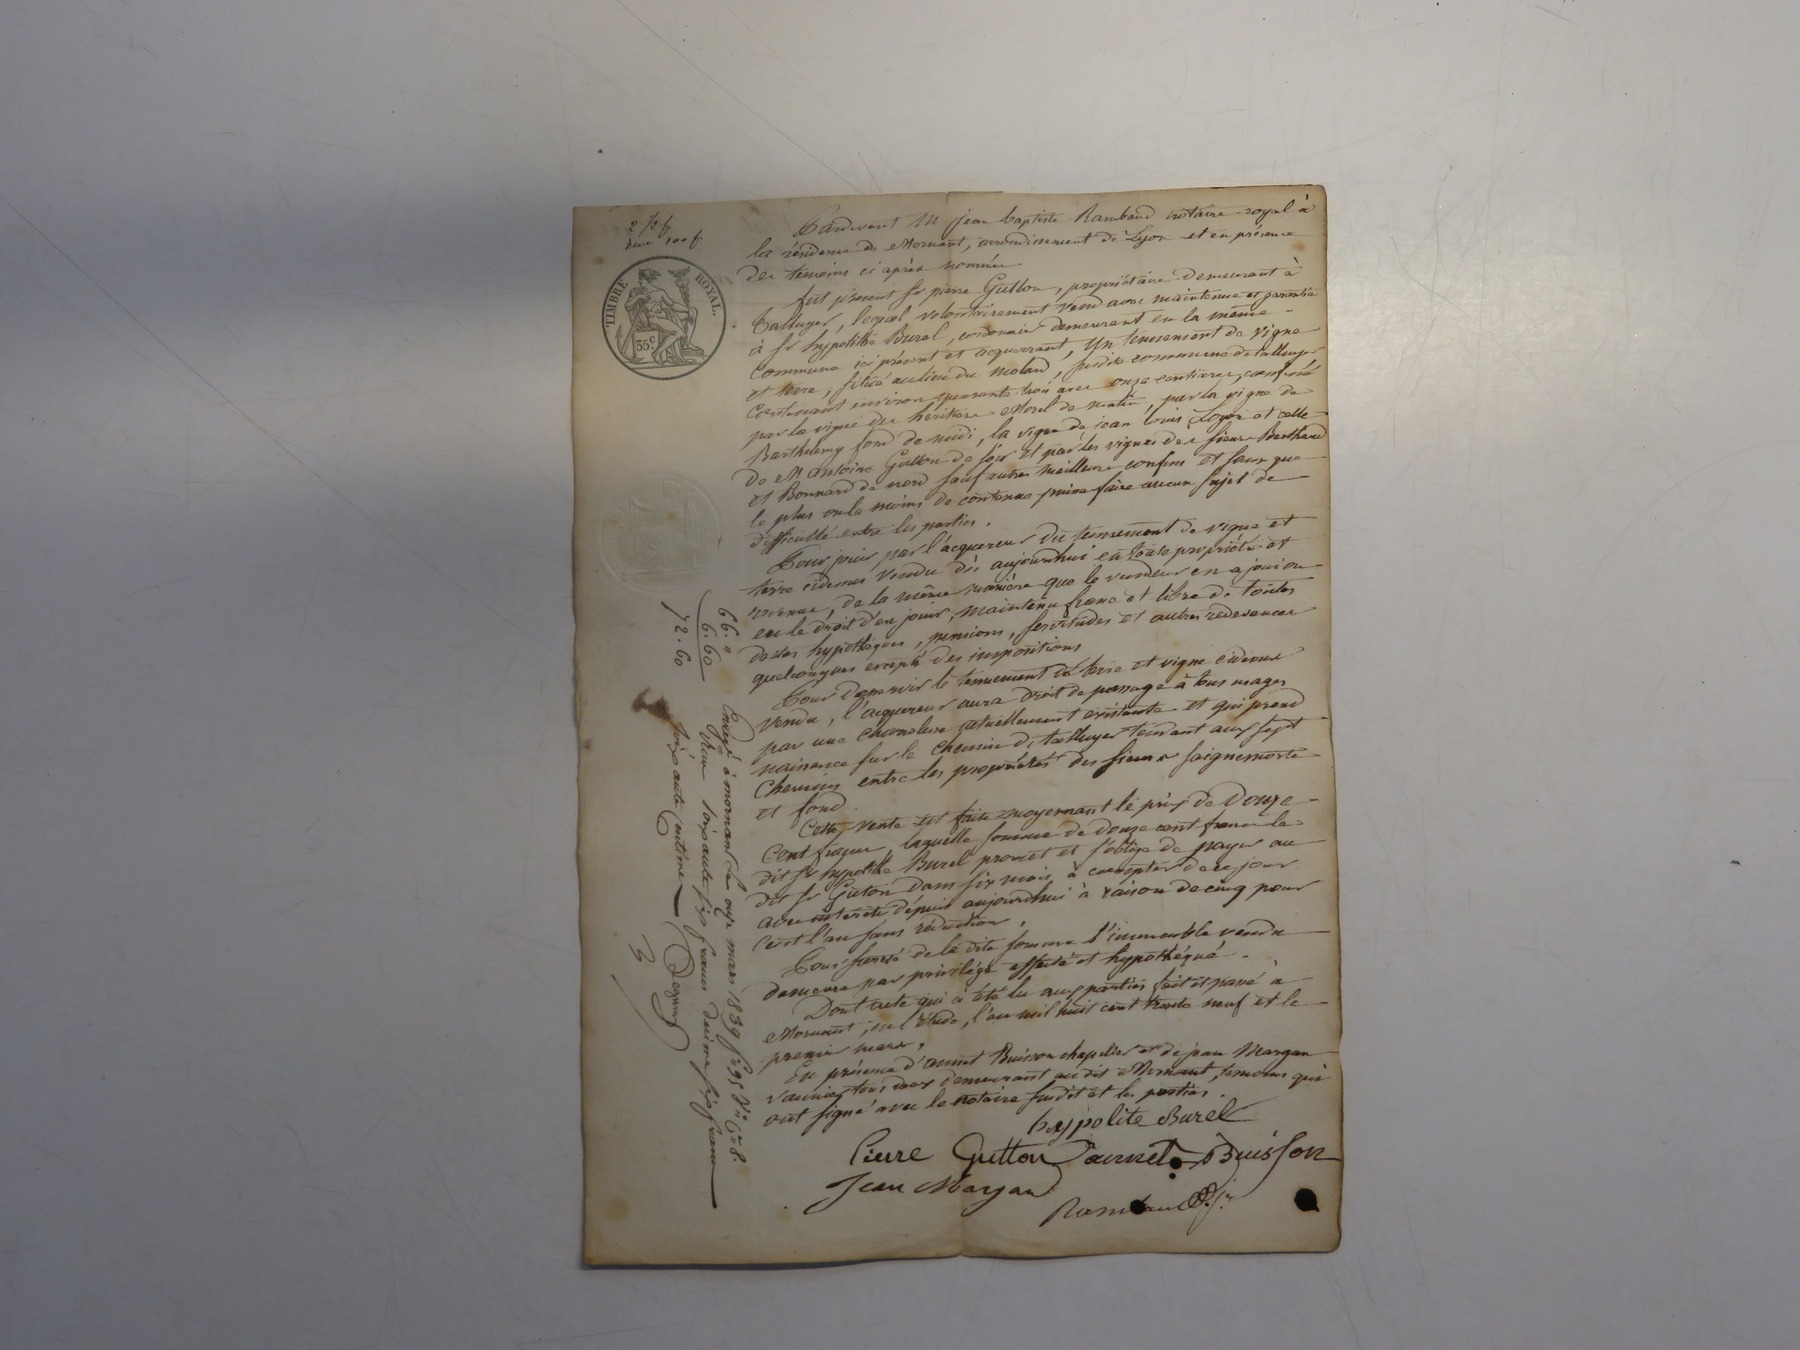 2 1/2 f
TIMBRE ROYAL.
35c
Pardevant Me jean baptiste Rambaud notaire royal à
la résidence de Mornant, arrondissement de Lyon et en présence
des témoins ci après nommés
fut présent Sr pierre Guttou, propriétaire demeurant à
Талluyer, lequel volontairement vend avec maintenue et garantie
à Sr hypolithe Burel, demeurant en la même
Commune ici présent et acquerrant, Un tennement de vigne
et terre, situé au lieu du Moland, susdite commune de talluyer
Contenant environ quarante trois ares onze centiares, confiné
par la vigne des héritiers Morel de matin, par la vigne de
Barthelemy fond de midi, la vigne de jean louis Loyer et celle
de M antoine Guttou de soir et par les vignes des sieurs Berthaud
et Bonnard de nord sauf autres meilleurs confins et sans que
le plus ou le moins de contenue puisse faire aucun sujet de
difficulté entre les parties.
Pour jouir par l'acquereur du tennement de vigne et
terre cidessus vendu dès aujourdhui en toute propriété et
revenus, de la même manière que le vendeur en a joui ou
eu le droit d'en jouir, maintenu franc et libre de toutes
dettes hypothèques, pensions, servitudes et autres redevances
quelconques excepté des impositions
Pour desservir le tennement de terre et vigne cidessus
vendu, l'acquereur aura droit de passage à tous usages
par une charrière actuellement existante et qui prend
naissance sur le chemin de talluyer tendant aux sept
chemins entre les propriétés des sieurs saignemorte
et fond.
Cette vente est faite moyennant le prix de Douze
Cent francs, laquelle somme de douze cent francs le
dit Sr hypolithe Burel promet et s'oblige de payer au
dit Sr Guton dans six mois à compter de ce jour
avec intérêts depuis aujourdhui à raison de cinq pour
cent l'an sans réduction.
Pour sureté de la dite somme l'immeuble vendu
demeure par privilége affecté et hypothéqué.
Dont acte qui a été lu aux parties fait et passé à
Mornant, en l'étude, l'an mil huit cent trente neuf et le
premier mars,
En présence d'aunet Buisson chapelier et de jean Margan
vannier tous deux demeurant au dit Mornant, témoins qui
ont signé avec le notaire susdit et les parties.
hypolite Burel
Pierre Guttou aunet Buisson
Jean Margan
Rambaud
66. "
6. 60
72. 60
Enregé à mornant le onze mars 1839 fo 95 Vo Ce 8.
Reçu soixante six francs decime six francs
soixante centimes